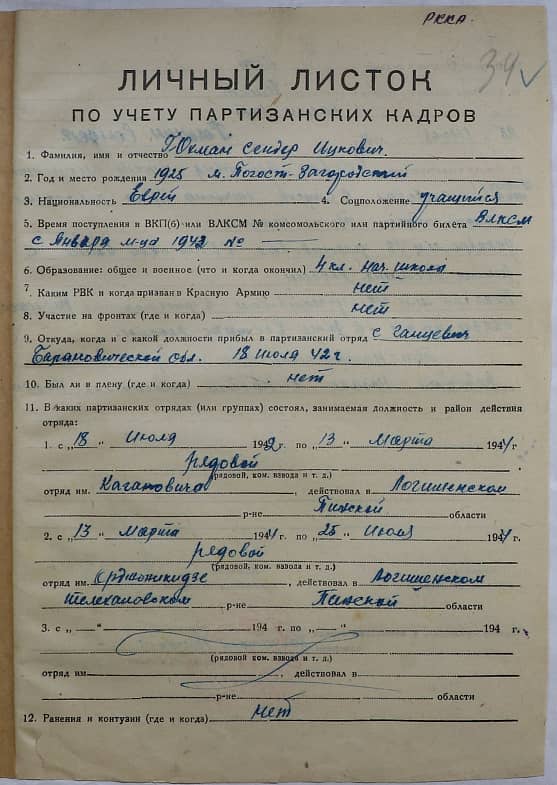 РККА
34
ЛИЧНЫЙ ЛИСТОК
ПО УЧЕТУ ПАРТИЗАНСКИХ КАДРОВ
1. Фамилия, имя и отчество Юкман Сендер Ицкович.
2. Год и место рождения 1925 м. Погост-Загородский
3. Национальность Еврей 4. Соцположение учащийся
5. Время поступления в ВКП(б) или ВЛКСМ № комсомольского или партийного билета ВЛКСМ
с Января м-ца 1942 № —
6. Образование: общее и военное (что и когда окончил) 4 кл. нач. школы
7. Каким РВК и когда призван в Красную Армию нет
8. Участие на фронтах (где и когда) нет
9. Откуда, когда и с какой должности прибыл в партизанский отряд с Ганцевич
Барановической обл. 18 июля 42 г.
10. Был ли в плену (где и когда) нет
11. В каких партизанских отрядах (или группах) состоял, занимаемая должность и район действия
отряда:
1. с „18 “ Июля 1942 г. по „13 “ Марта 1944 г.
рядовой
(рядовой, ком. взвода и т. д.)
отряд им. Кагановича, действовал в Логишенском
р-не Пинской области
2. с „13 “ Марта 1944 г. по „25 “ Июля 1944 г.
рядовой
(рядовой, ком. взвода и т. д.)
отряд им. Орджоникидзе, действовал в Логишенском
Телехановском р-не Пинской области
3. с „ — “ 194 г. по „ — “ 194 г.
(рядовой ком. взвода и т. д.)
отряд им. , действовал в
р-не области
12. Ранения и контузии (где и когда) нет